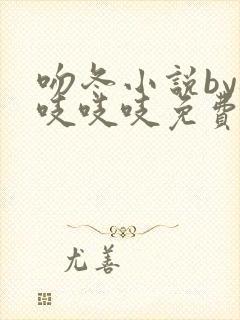 吻冬小説by
吱吱吱免費
尤善